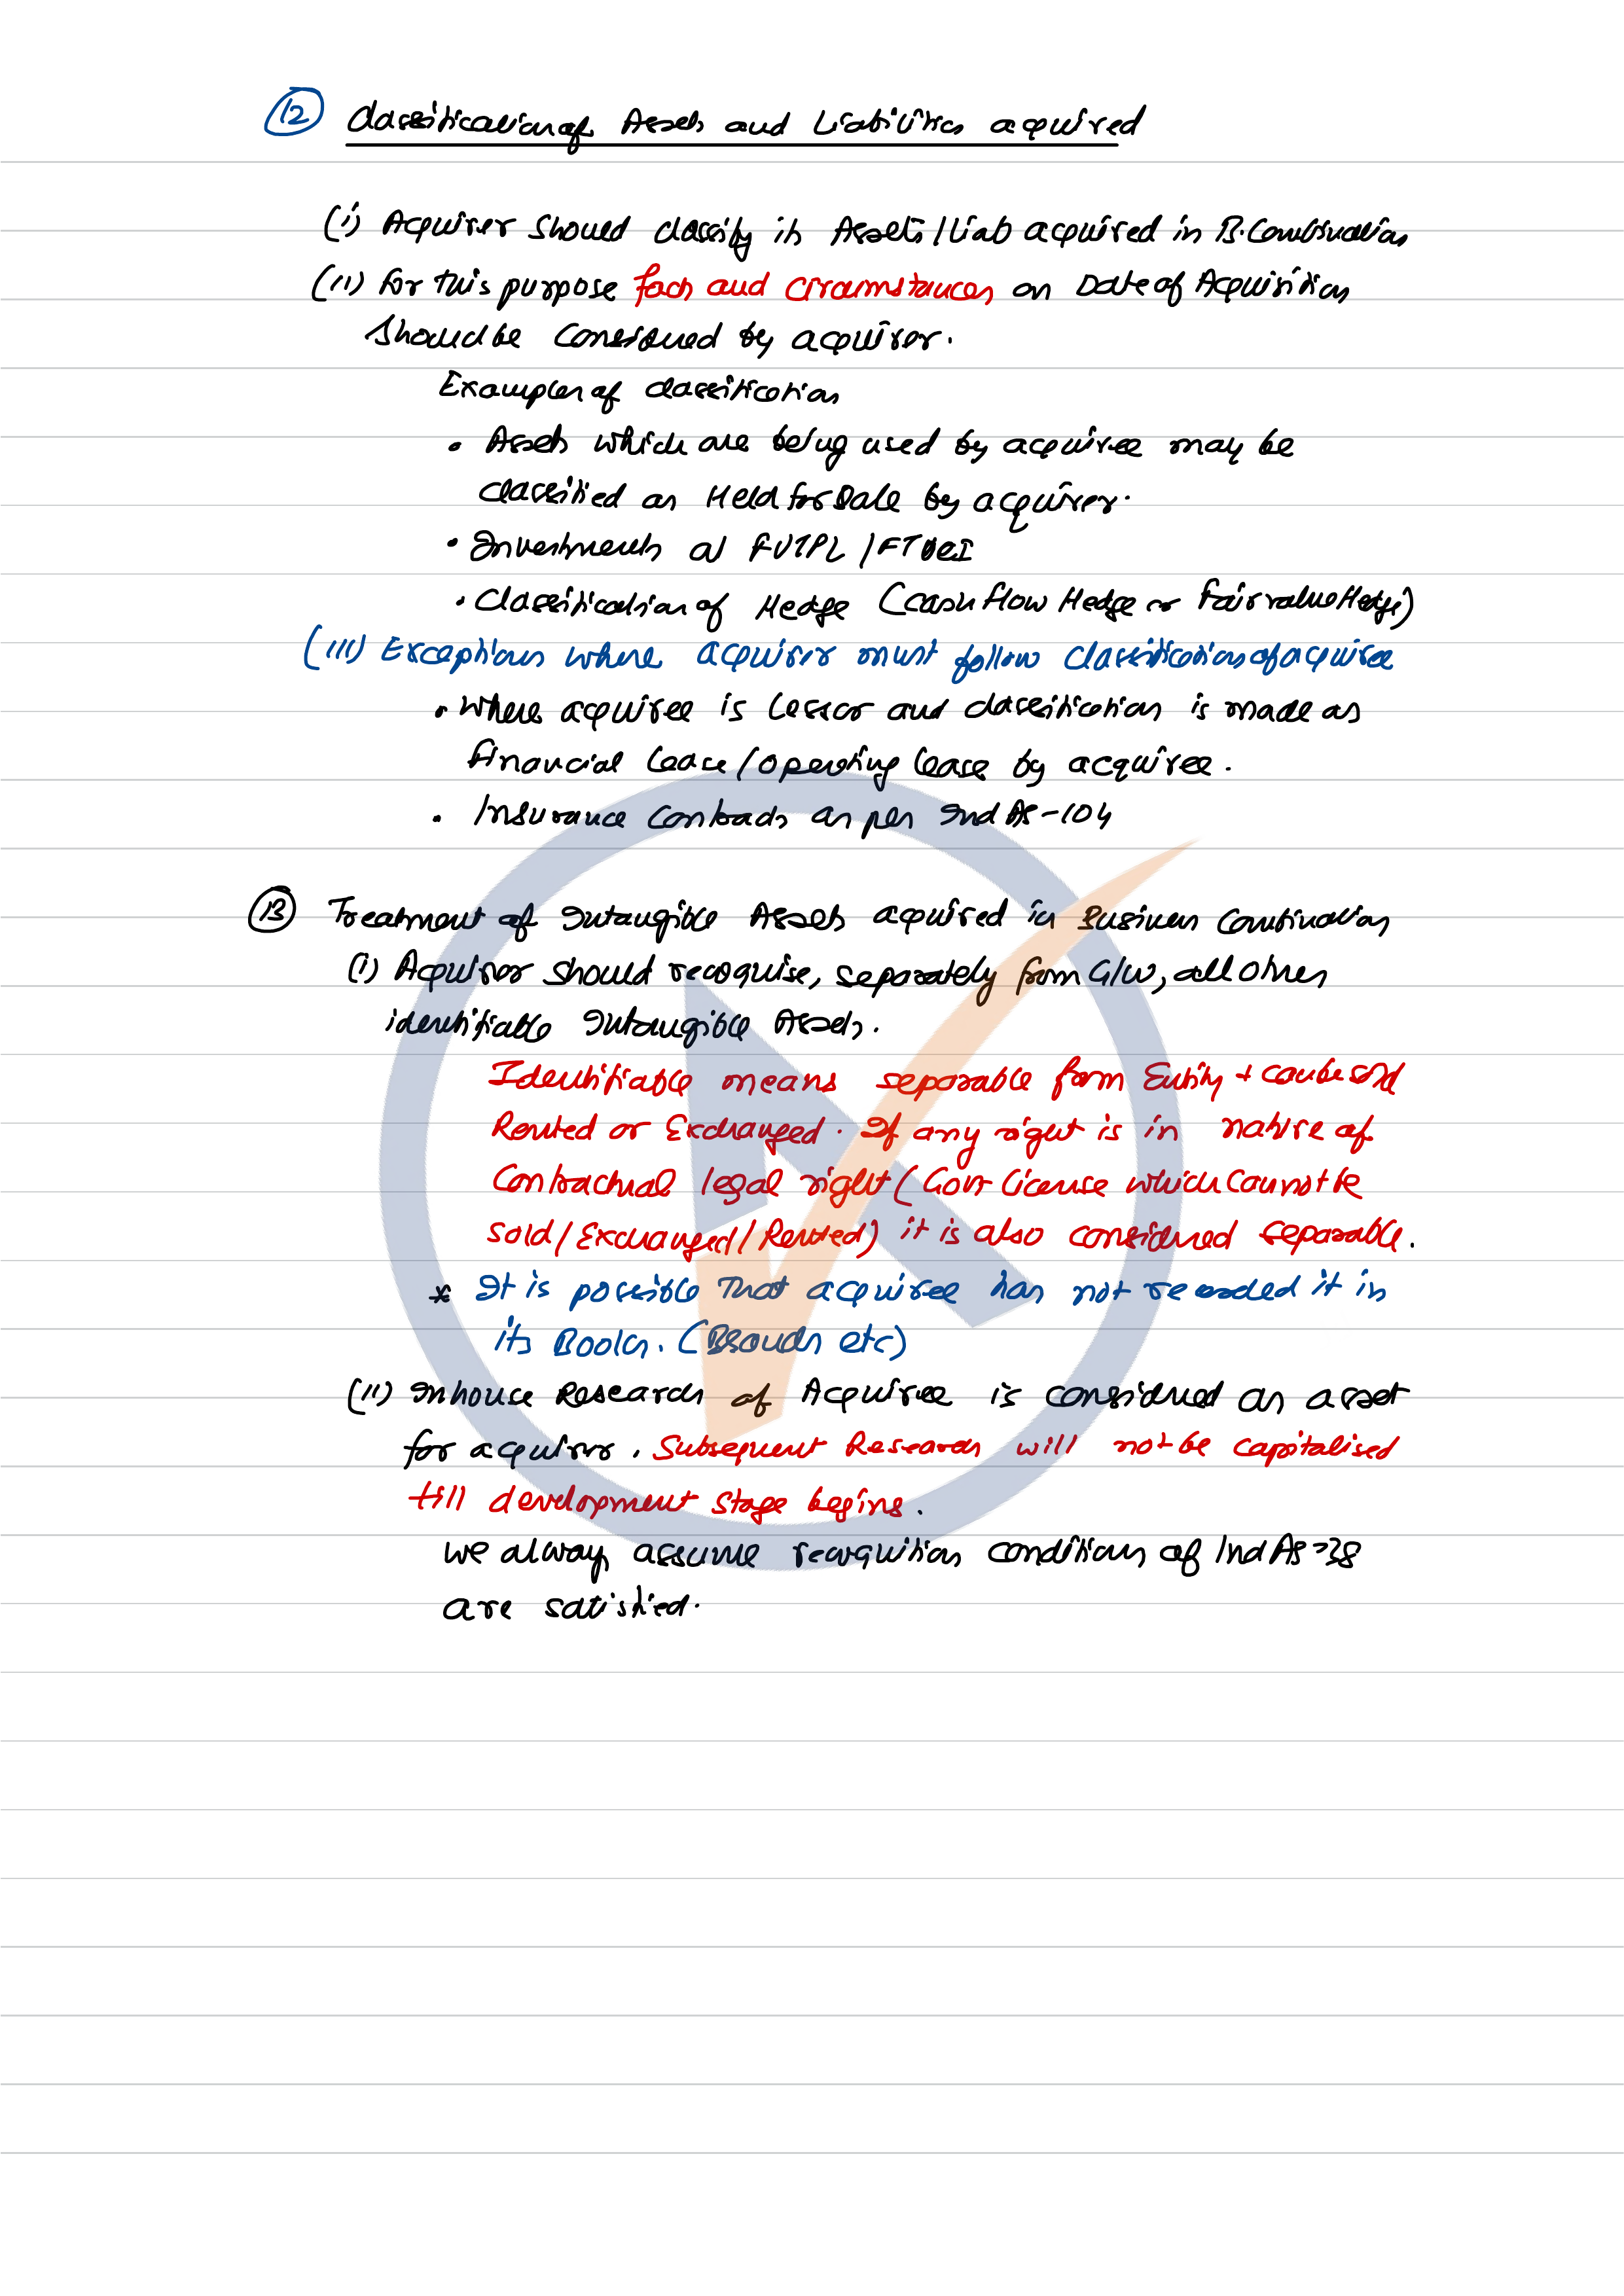 12 Classification of Assets and Liabilities acquired
(i) Acquirer should classify its Assets/Liab acquired in B.Combination
(ii) For this purpose facts and circumstances on Date of Acquisition
should be considered by acquirer.
Examples of classification
• Assets which are being used by acquiree may be
classified as Held for Sale by acquirer.
• Investments at FVTPL / FTOCI
• Classification of Hedge (cash flow Hedge or Fair value Hedge)
(iii) Exceptions where acquirer must follow classification of acquiree
• Where acquiree is Lessor and classification is made as
financial lease/operating lease by acquiree.
• Insurance Contracts as per Ind AS-104
13 Treatment of Intangible Assets acquired in Business Combination
(i) Acquiror should recognise, separately from G/W, all other
identifiable Intangible Assets.
Identifiable means separable form Entity + can be sold
Rented or Exchanged. If any right is in nature of
Contractual legal right (Govt License which cannot be
sold/Exchanged/Rented) it is also considered separable.
* It is possible that acquiree has not recorded it in
its Books. (Brands etc)
(ii) Inhouse Research of Acquiree is considered an asset
for acquiror. Subsequent Research will not be capitalised
till development stage begins.
We always assume recognition conditions of Ind AS-38
are satisfied.